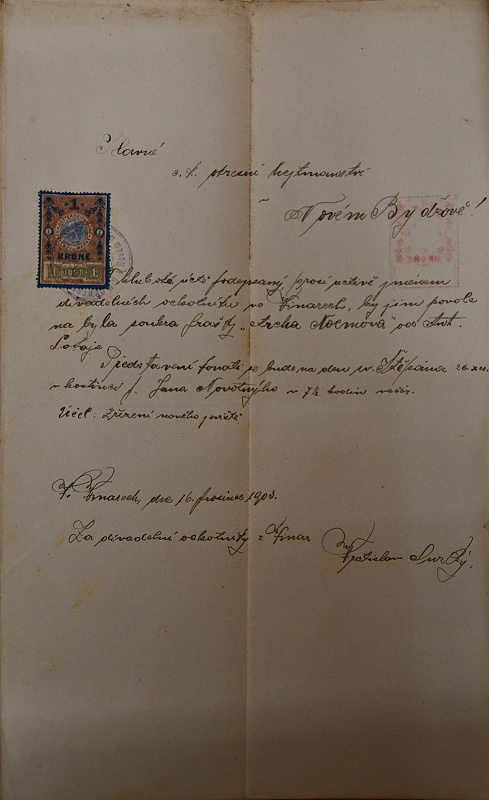 Slavné
c. k. okresní hejtmanství
v Novém Bydžově!
1
KRONE
1. 1898 1.
V hluboké úctě podepsaný prosí uctivě jménem
divadelních ochotníků ve Vinarech, by jim povole
na byla sehra frašky „Archa Noemova" od Ant.
Představení konati se bude na den sv. Štěpána 26.XII.
v hostinci p. Jana Novotného v 7½ hodin večer.
Účel: Zřízení nového jeviště
Ve Vinarech, dne 16. prosince 1903.
Za divadelní ochotníky z Vinar
Vratislav